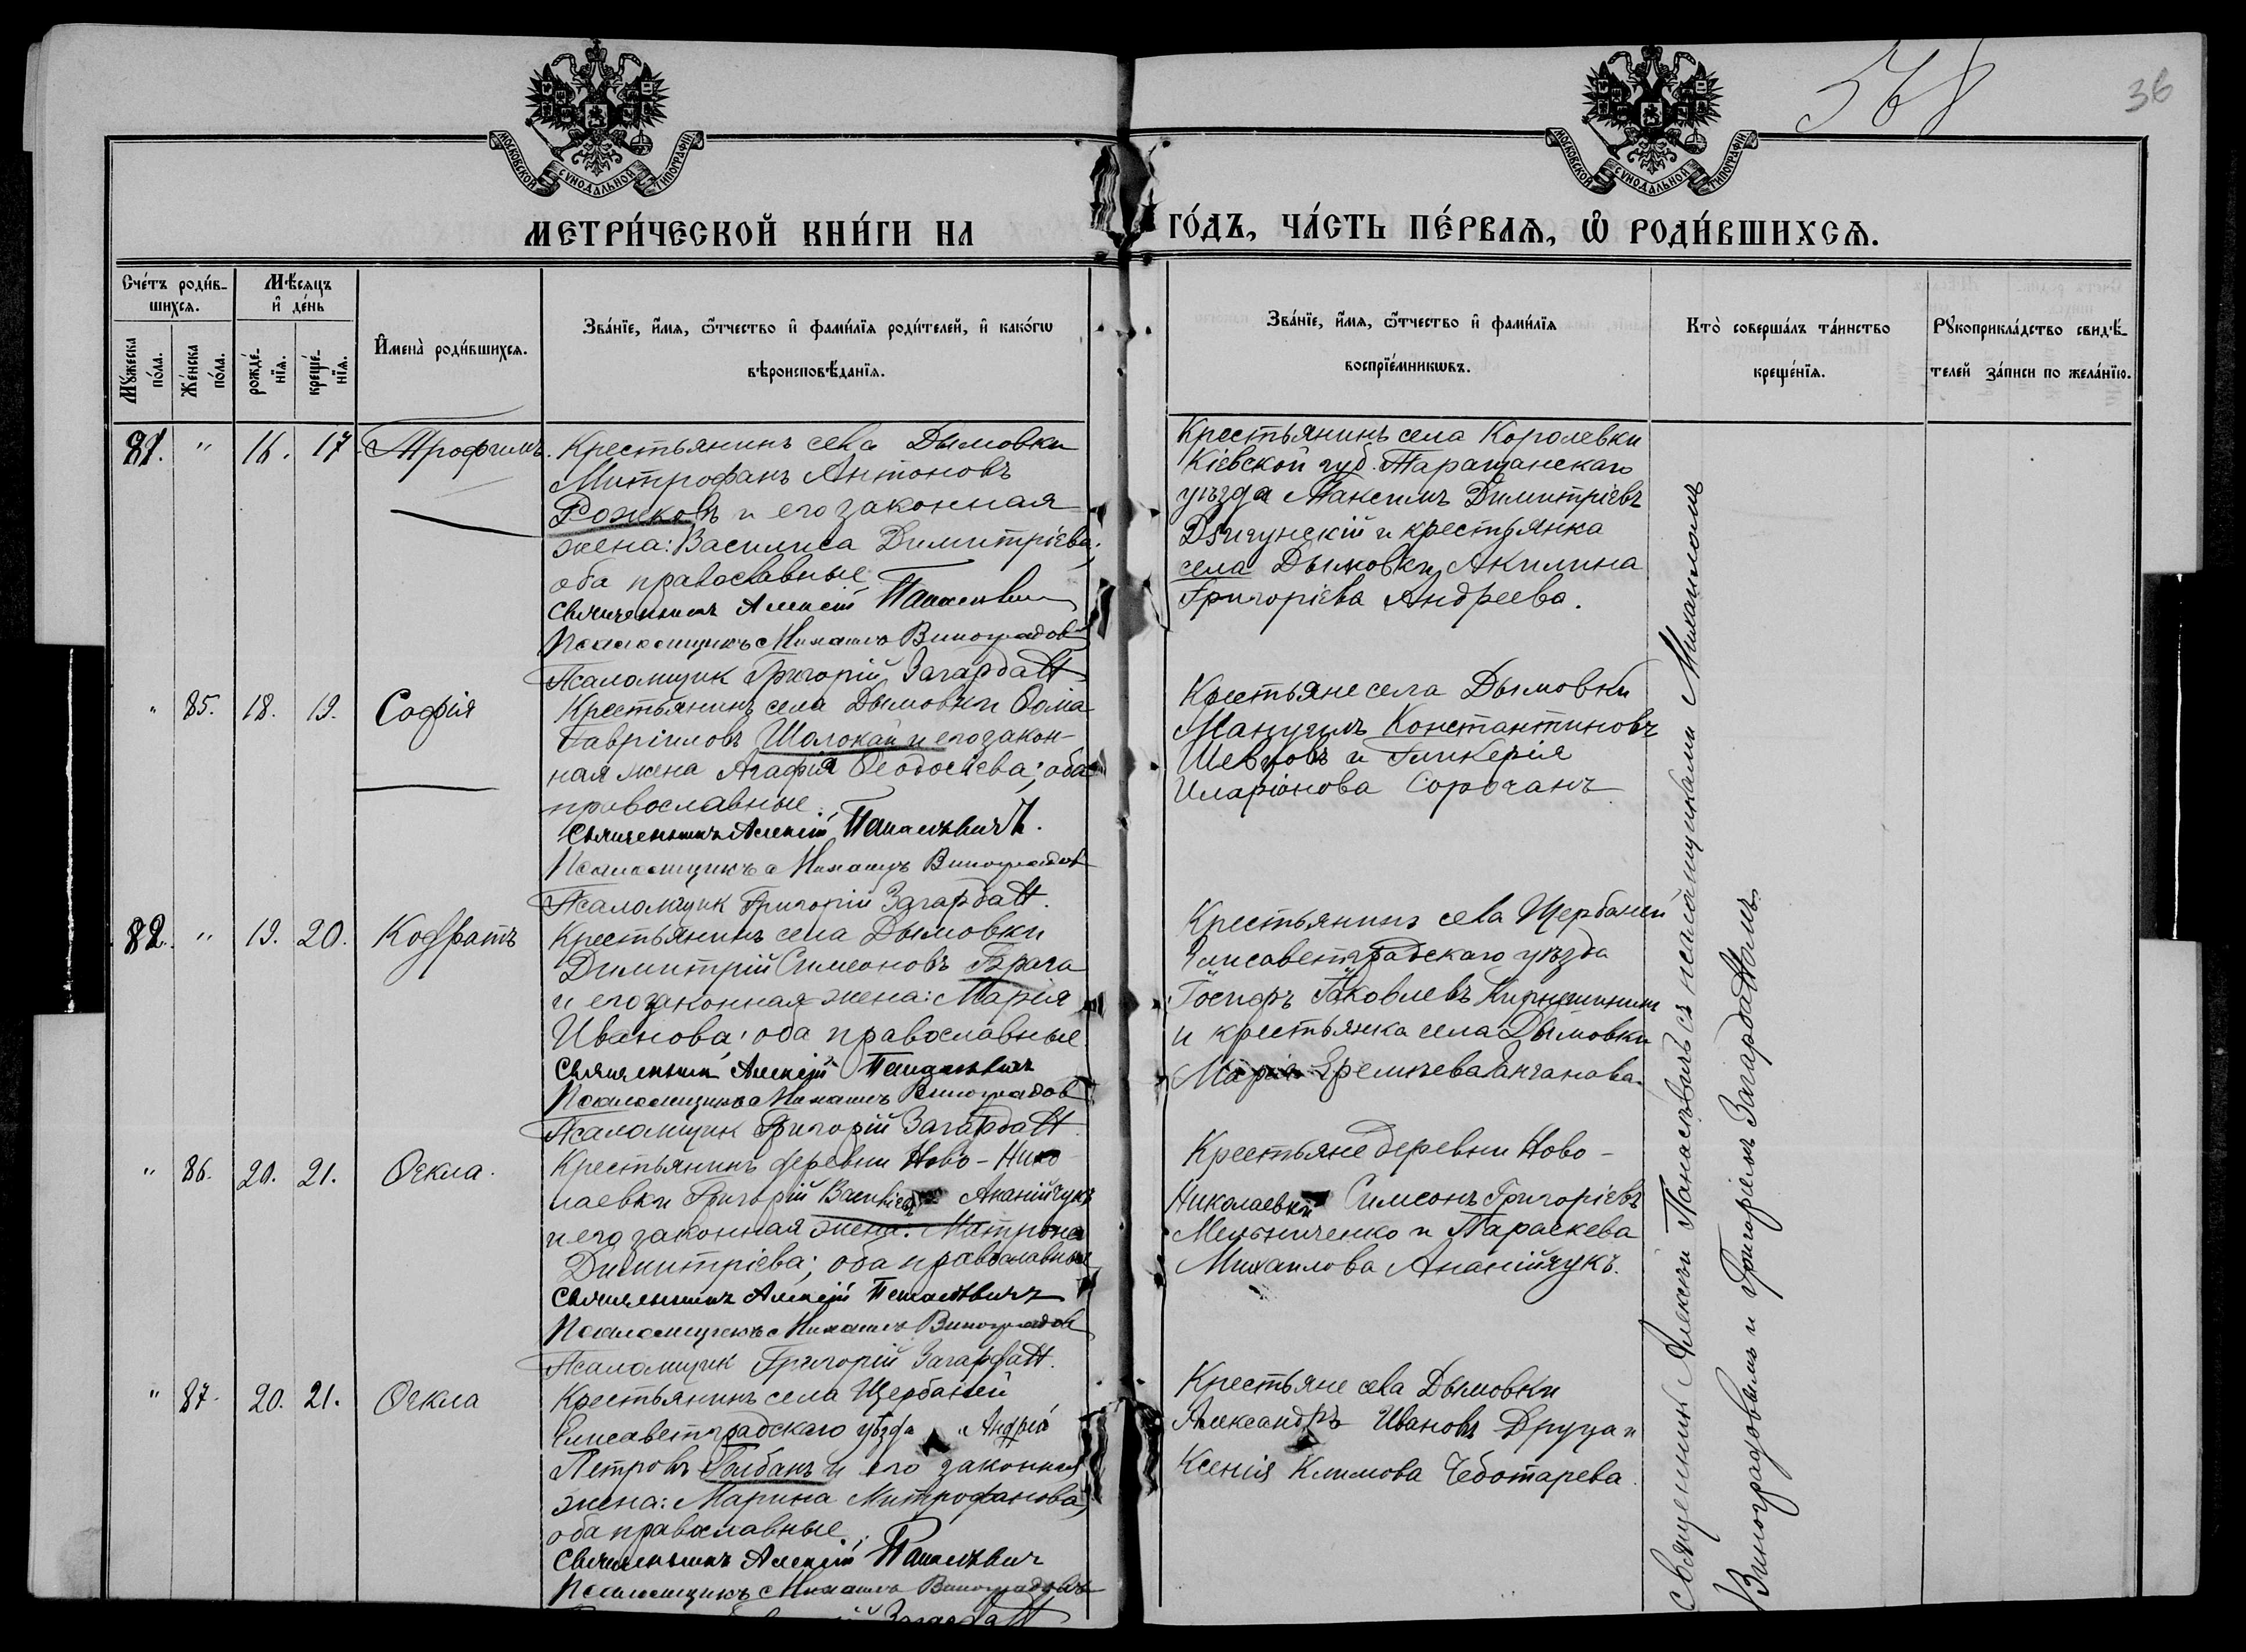 568
36
МОСКОВСКОЙ СУНОДАЛЬНОЙ ТИПОГРАФІИ
МОСКОВСКОЙ СУНОДАЛЬНОЙ ТИПОГРАФІИ
МЕТРИ́ЧЕСКОЙ КНИ́ГИ НА
ГО́ДЪ, ЧА́СТЬ ПЕ́РВАѦ, Ѡ҆ РОДИ́ВШИХСѦ.
Сче́тъ роди́в-
шихсѧ.
Мꙋ́жеска по́ла.
Же́нска по́ла.
Мѣ́сѧцъ
и҆ де́нь
рожде́-нїѧ.
креще́-нїѧ.
И҆мена̀ роди́вшихсѧ.
Зва́нїе, и҆́мѧ, ѻ҆́тчество и҆ фами́лїѧ роди́телей, и҆ како́гѡ
вѣроисповѣ́данїѧ.
Зва́нїе, и҆́мѧ, ѻ҆́тчество и҆ фами́лїѧ
воспрїе́мникѡвъ.
Кто̀ соверша́лъ та́инство
креще́нїѧ.
Рꙋкоприкла́дство свидѣ́-
телей за́писи по жела́нїю.
81. " 16. 17 Трофимъ.
Крестьянинъ села Дымовки
Митрофанъ Антоновъ
Рожковъ и его законная
жена: Василиса Димитріева;
оба православные
Священникъ Алексій Панасевич
Псаломщикъ Михаилъ Виноградовъ
Псаломщик Григорій Загарбатт
Крестьянинъ села Королевки
Кіевской губ. Таращанскаго
уѣзда Максимъ Димитріевъ
Дзигунскій и крестьянка
села Дымовки Акилина
Григоріева Андреева.
" 85. 18. 19. Софія
Крестьянинъ села Дымовки Ѳома
Гавріиловъ Шолокай и его закон-
ная жена Агафія Ѳеодосіева; оба
православные.
Священникъ Алексій Панасѣвичъ.
Псаломщикъ Михаилъ Виноградов
Псаломщик Григорій Загарбатт.
Крестьяне села Дымовки
Мануилъ Константиновъ
Шевцовъ и Гликерія
Иларіонова Сорочанъ
82. " 19. 20. Кодратъ
Крестьянинъ села Дымовки
Димитрій Симеоновъ Брага
и его законная жена: Марія
Иванова; оба православные
Священник Алексій Панасѣвичъ
Псаломщикъ Михаилъ Виноградов
Псаломщик Григорій Загарбатт
Крестьянинъ села Щербаней
Елисаветградскаго уѣзда
Іаковлевъ
и крестьянка села Дымовки
Марія
" 86. 20. 21. Ѳекла.
Крестьянинъ деревни Ново-Нико
лаевки Григорій Васильевъ Ананійчукъ
и его законная жена: Матрона
Димитріева; оба православные
Священникъ Алексій Панасѣвичъ
Псаломщикъ Михаилъ Виноградов
Псаломщик Григорій Загарбатт.
Крестьяне деревни Ново-
Николаевки Симеонъ Григоріевъ
Мельниченко и Параскева
Михаилова Ананійчукъ.
" 87. 20. 21. Ѳекла
Крестьянинъ села Щербаней
Елисаветградскаго уѣзда Андрей
Петровъ Голбанъ и его законная
жена: Марина Митрофанова,
оба православные;
Священникъ Алексій Панасѣвич
Псаломщикъ Михаилъ Виноградовъ
Загарбатт
Крестьяне села Дымовки
Александръ Ивановъ Друца и
Ксенія Климова Чеботарева
Священник Алексѣй Панасѣвичъ съ псаломщиками Михаиломъ
Виноградовымъ и Григоріемъ Загарбаттомъ.